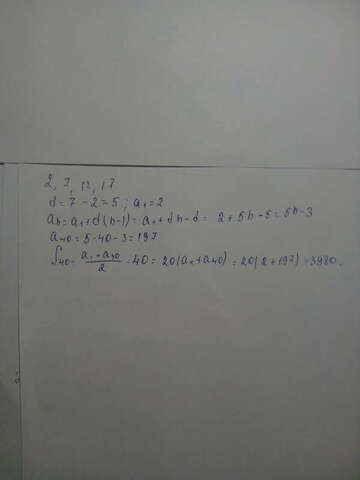 2, 7, 12, 17
d = 7 - 2 = 5 ; a₁ = 2
aₙ = a₁ + d(n-1) = a₁ + dn - d = 2 + 5n - 5 = 5n - 3
a₄₀ = 5 · 40 - 3 = 197
S₄₀ = (a₁ + a₄₀)/2 · 40 = 20(a₁ + a₄₀) = 20(2 + 197) = 3980.